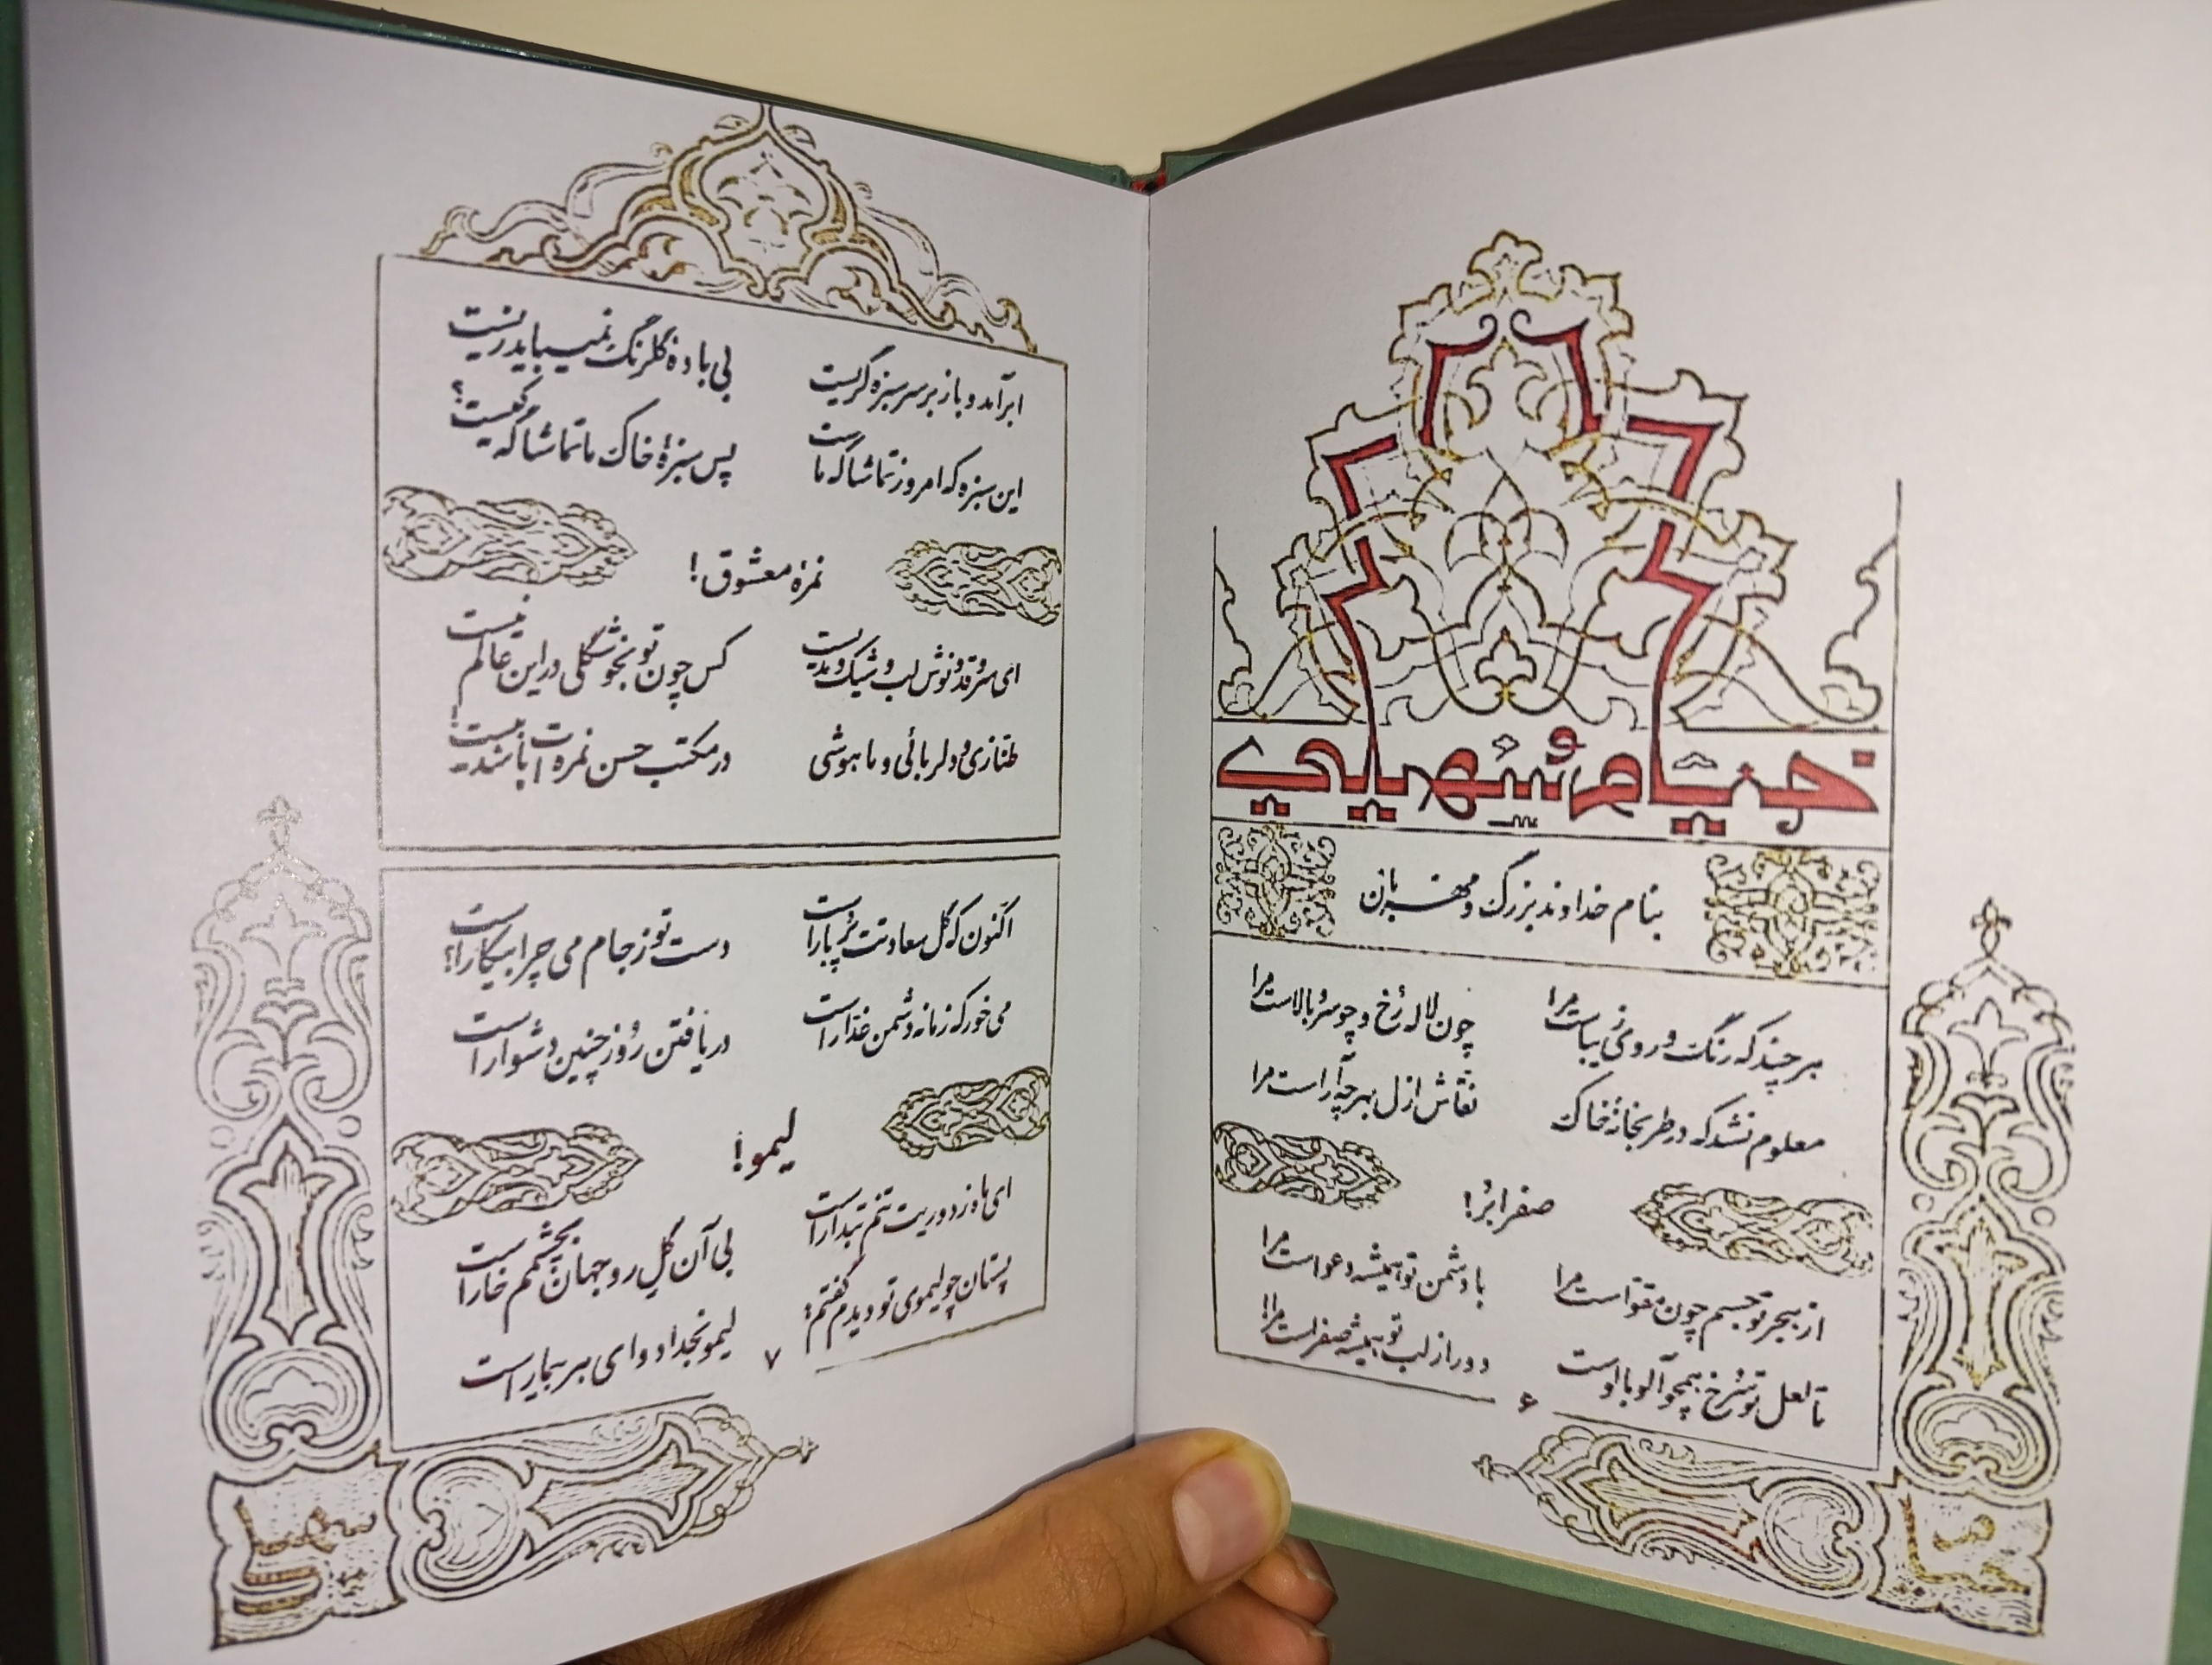 خیام و سهیلی
بنام خداوند بزرگ و مهربان
هر چند که رنگ و روی زیباست مرا چون لاله رخ و چو سرو بالاست مرا
معلوم نشد که در طربخانهٔ خاک نقاش ازل بهر چه آراست مرا
صفرابُر!
از هجر تو جسم چون مقواست مرا با دشمن تو همیشه دعواست مرا
تا لعل تو سُرخ همچو آلوبالوست دور از لب تو همیشه صفراست مرا!
۶
ابر آمد و باز بر سر سبزه گریست بی بادهٔ گلرنگ نمیباید زیست
این سبزه که امروز تماشاگه ماست پس سبزهٔ خاک ما تماشاگه کیست؟
نمرهٔ معشوق!
ای سرو قد و نوش لب و شیک و مدیست کس چون تو بخوشگلی در این عالم نیست
طنازی و دلربائی و ماهوشی در مکتب حسن نمره ات باشد بیست!
اکنون که گل سعادتت پُربار است دست تو ز جام می چرا بیکار است؟
می خور که زمانه دشمن غدّار است دریافتن روز چنین دشوار است
لیمو!
ای ماه ز دوریت تنم تبدار است بی آن گل رو جهان بچشمم خار است
پستان چو لیموی تو دیدم گفتم: لیمو بخدا دوای هر بیمار است
۷